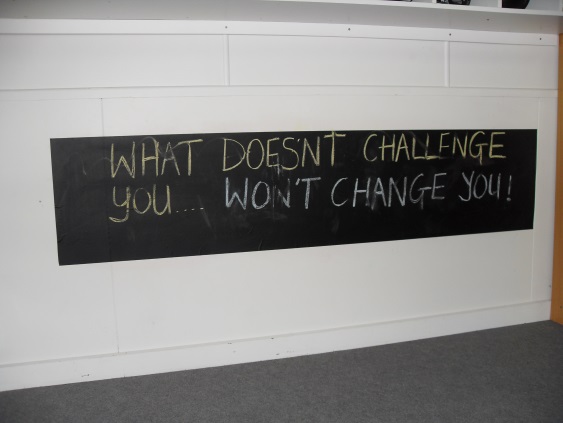 WHAT DOESN'T CHALLENGE
YOU.... WON'T CHANGE YOU!